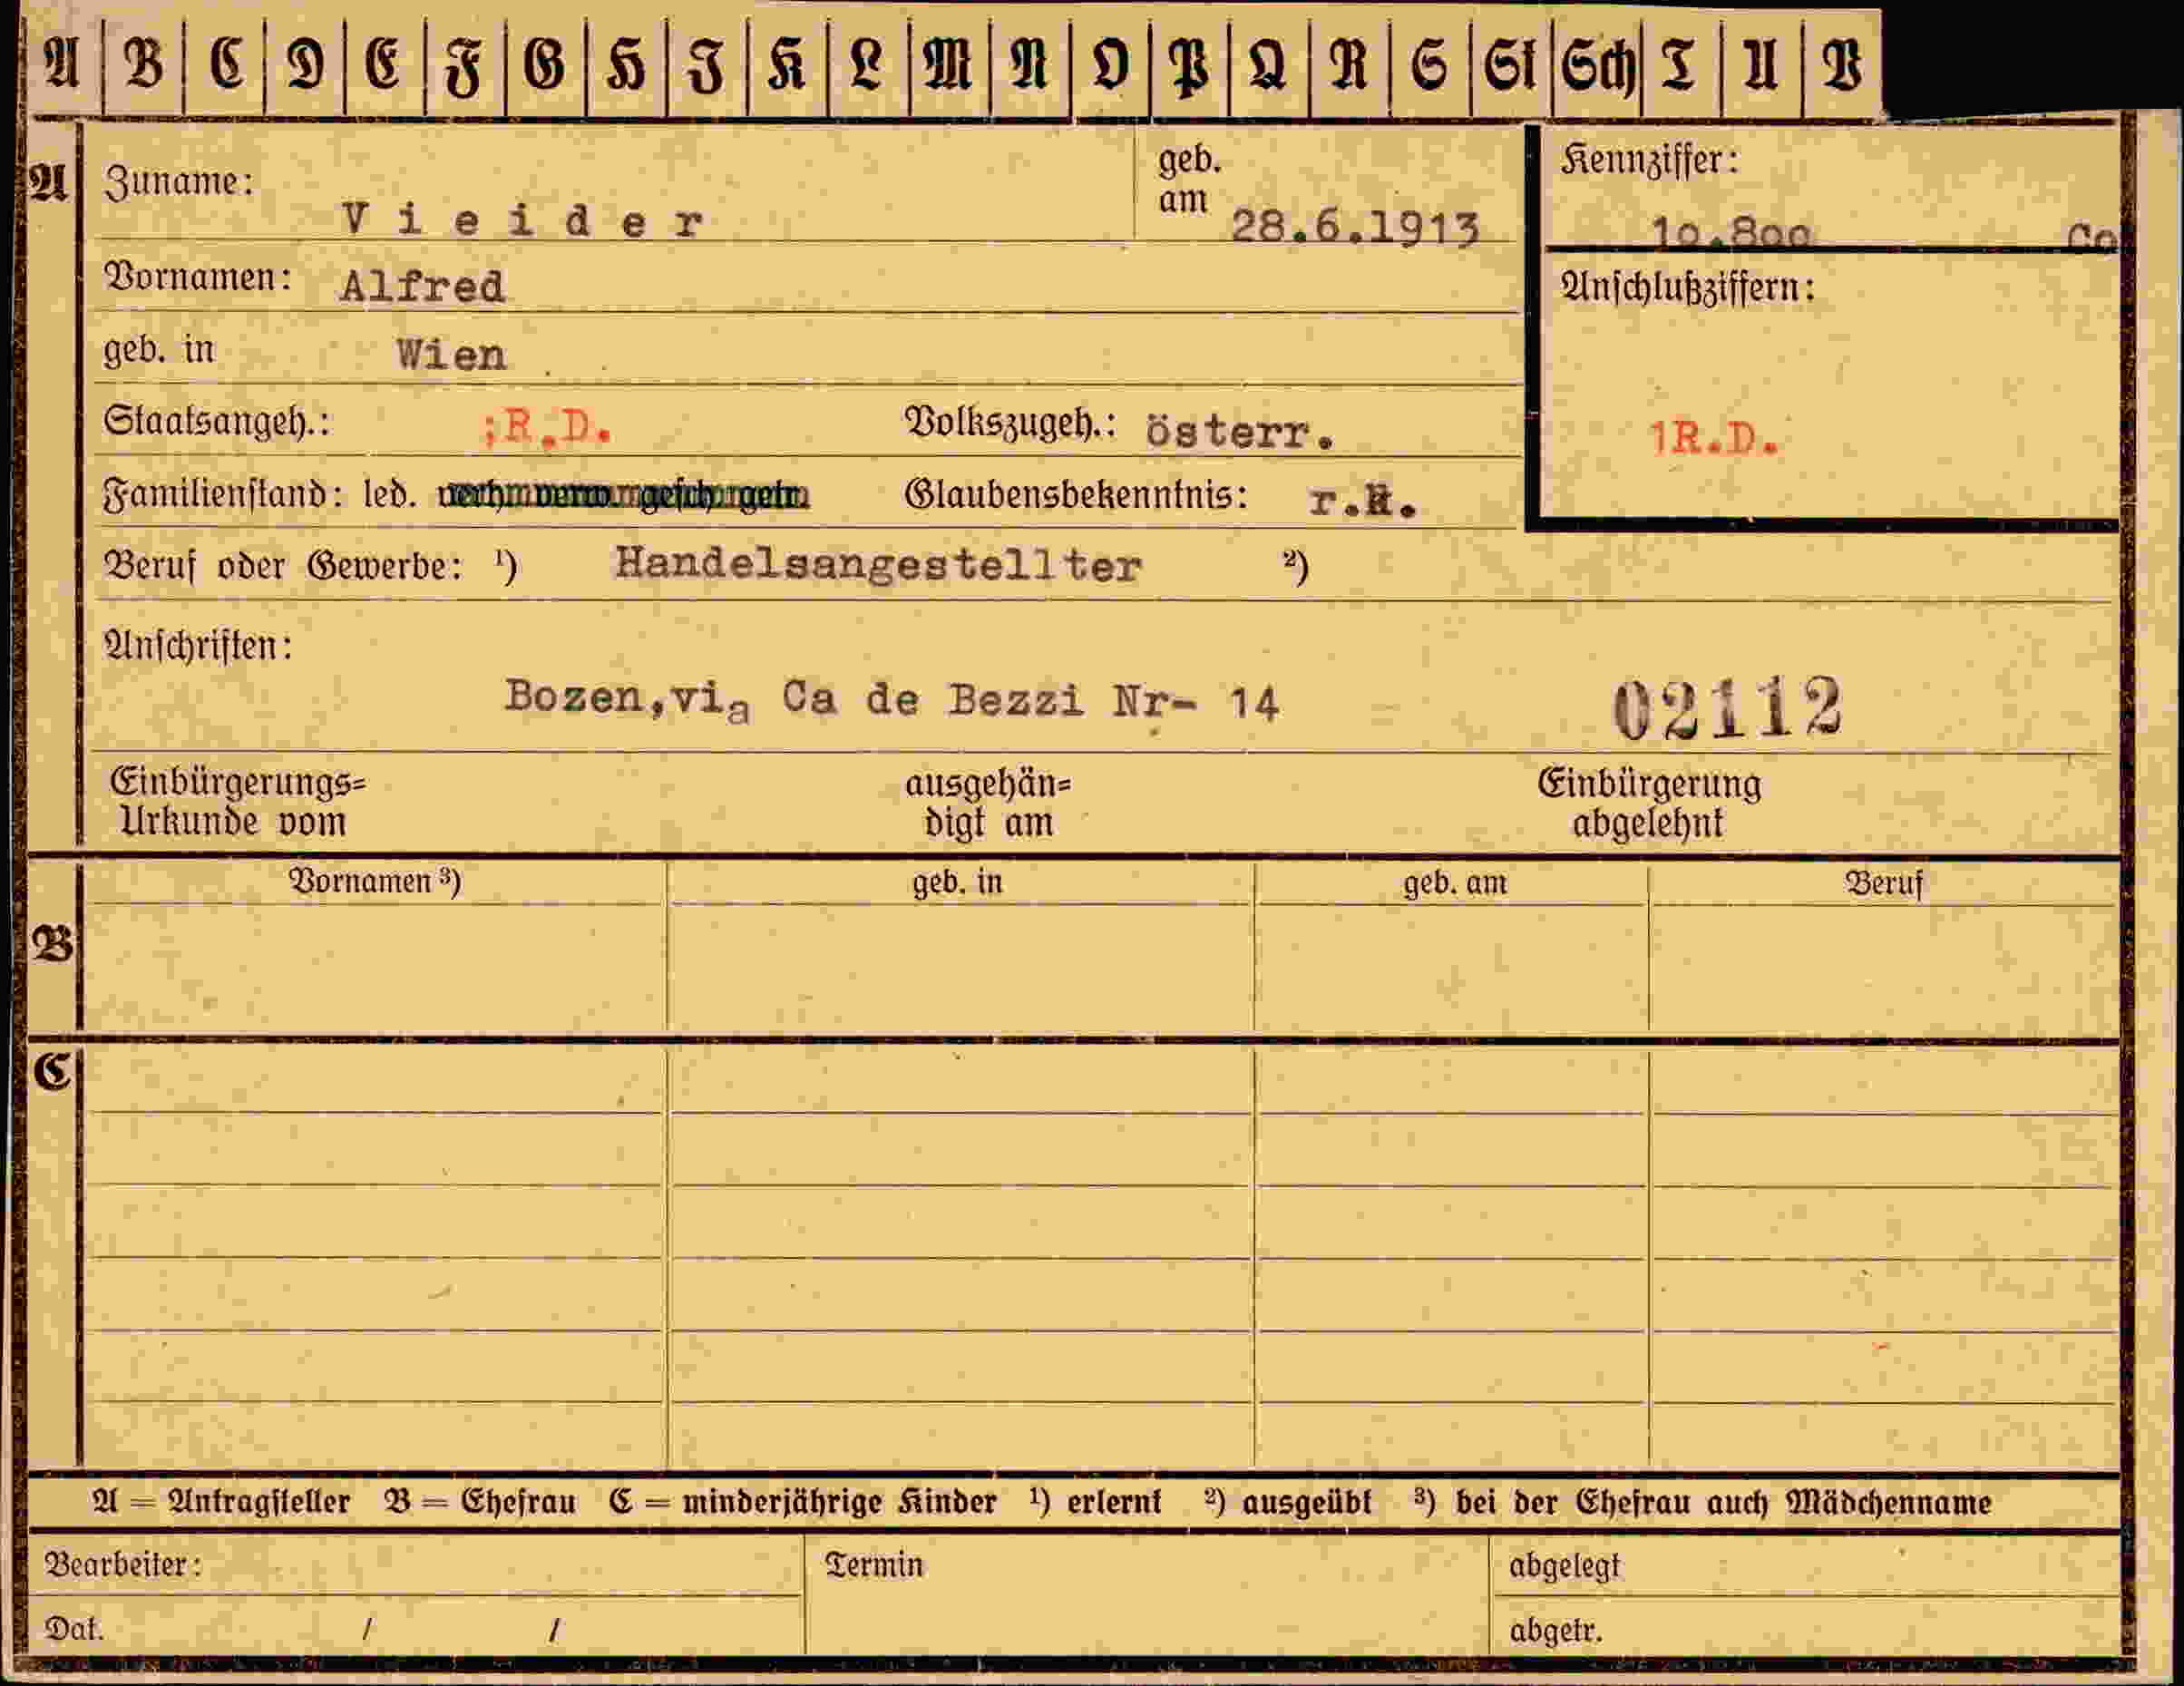 A B C D E F G H I K L M N O P Q R S St Sch T U V
A Zuname: Vieider geb. am 28.6.1913 Kennziffer: 10.800 Co
Vornamen: Alfred Anschlußziffern:
geb. in Wien
Staatsangeh.: ;R.D. Volkszugeh.: österr. 1R.D.
Familienstand: led. Glaubensbekenntnis: r.k.
Beruf oder Gewerbe: ¹) Handelsangestellter ²)
Anschriften:
Bozen,via Ca de Bezzi Nr- 14 02112
Einbürgerungs= ausgehän= Einbürgerung
Urkunde vom digt am abgelehnt
Vornamen ³) geb. in geb. am Beruf
B
C
A = Antragsteller B = Ehefrau C = minderjährige Kinder ¹) erlernt ²) ausgeübt ³) bei der Ehefrau auch Mädchenname
Bearbeiter: Termin abgelegt
Dat. / / abgetr.